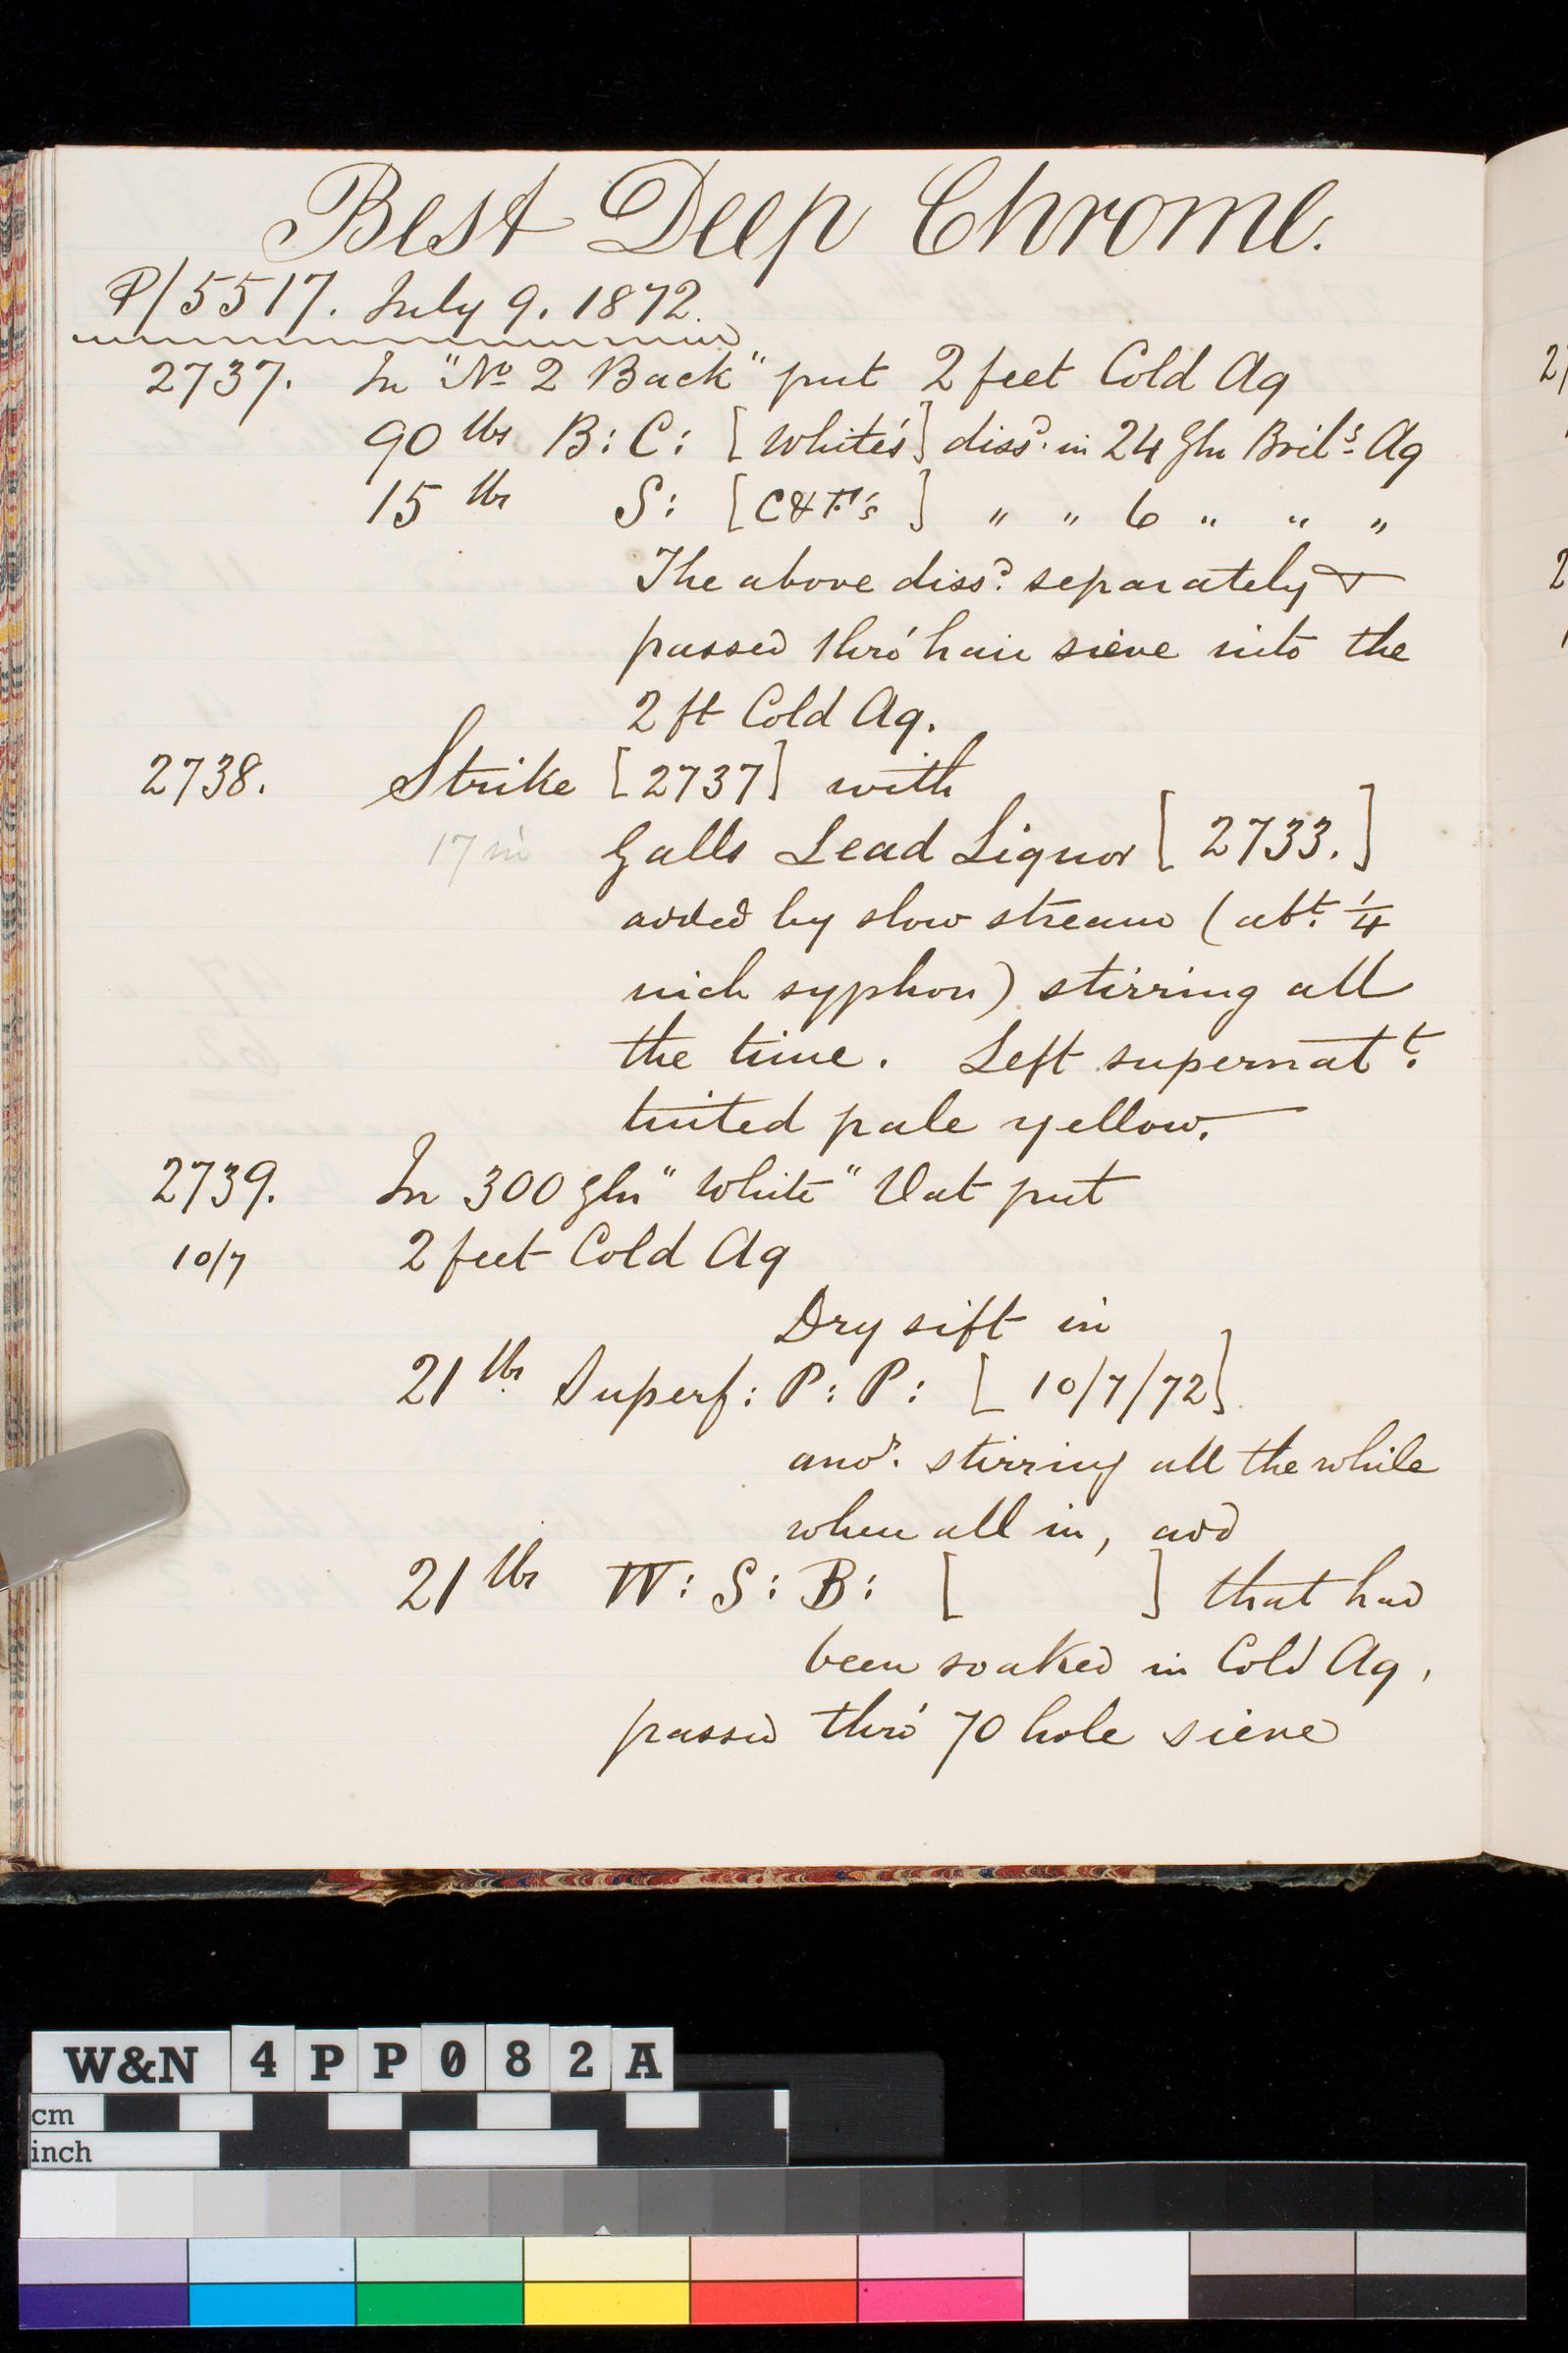 Best Deep Chrome.
P/5517. July 9. 1872.
2737. In "No 2 Back" put 2 feet Cold Aq
90 lbs B: C: [White's] dissd. in 24 Glns Boilg Aq
15 lbs S: [C&F's] " " 6 " " "
The above dissd. separately &
passed thro' hair sieve into the
2 ft Cold Aq.
2738. Strike [2737] with
17 in Galls Lead Liquor [2733.]
added by slow stream (abt. 1/4
inch syphon) stirring all
the time. Left supernatt.
tinted pale yellow.
2739. In 300 gln "White" Vat put
10/7 2 feet Cold Aq
Dry sift in
21 lbs Superf: P: P: [10/7/72]
anor. stirring all the while
when all in, add
21 lbs W: S: B: [ ] that had
been soaked in Cold Aq,
passed thro' 70 hole sieve
W&N 4PP082A
cm
inch